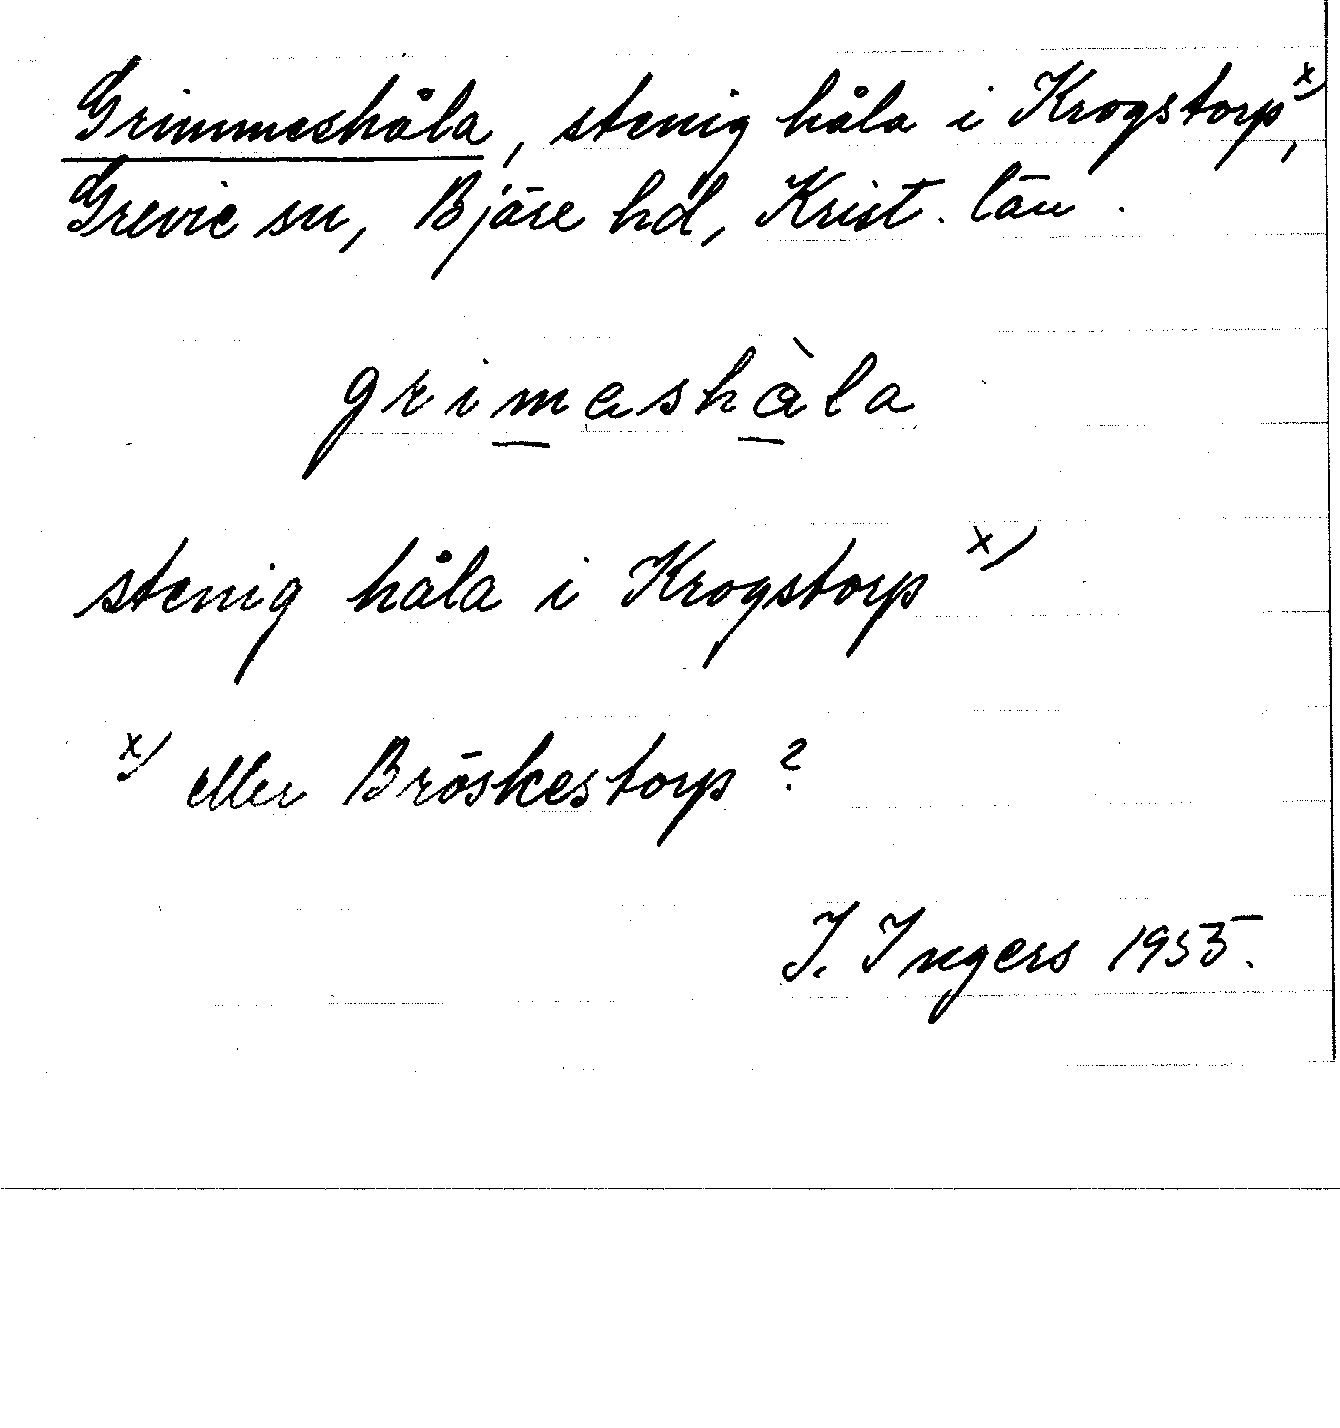 Grimmeshåla, stenig håla i Krogstorp x),
Grevie sn, Bjäre hd, Krist. län.
grimeshàla
stenig håla i Krogstorp x)
x) eller Bröskestorp?
I. Ingers 1955.